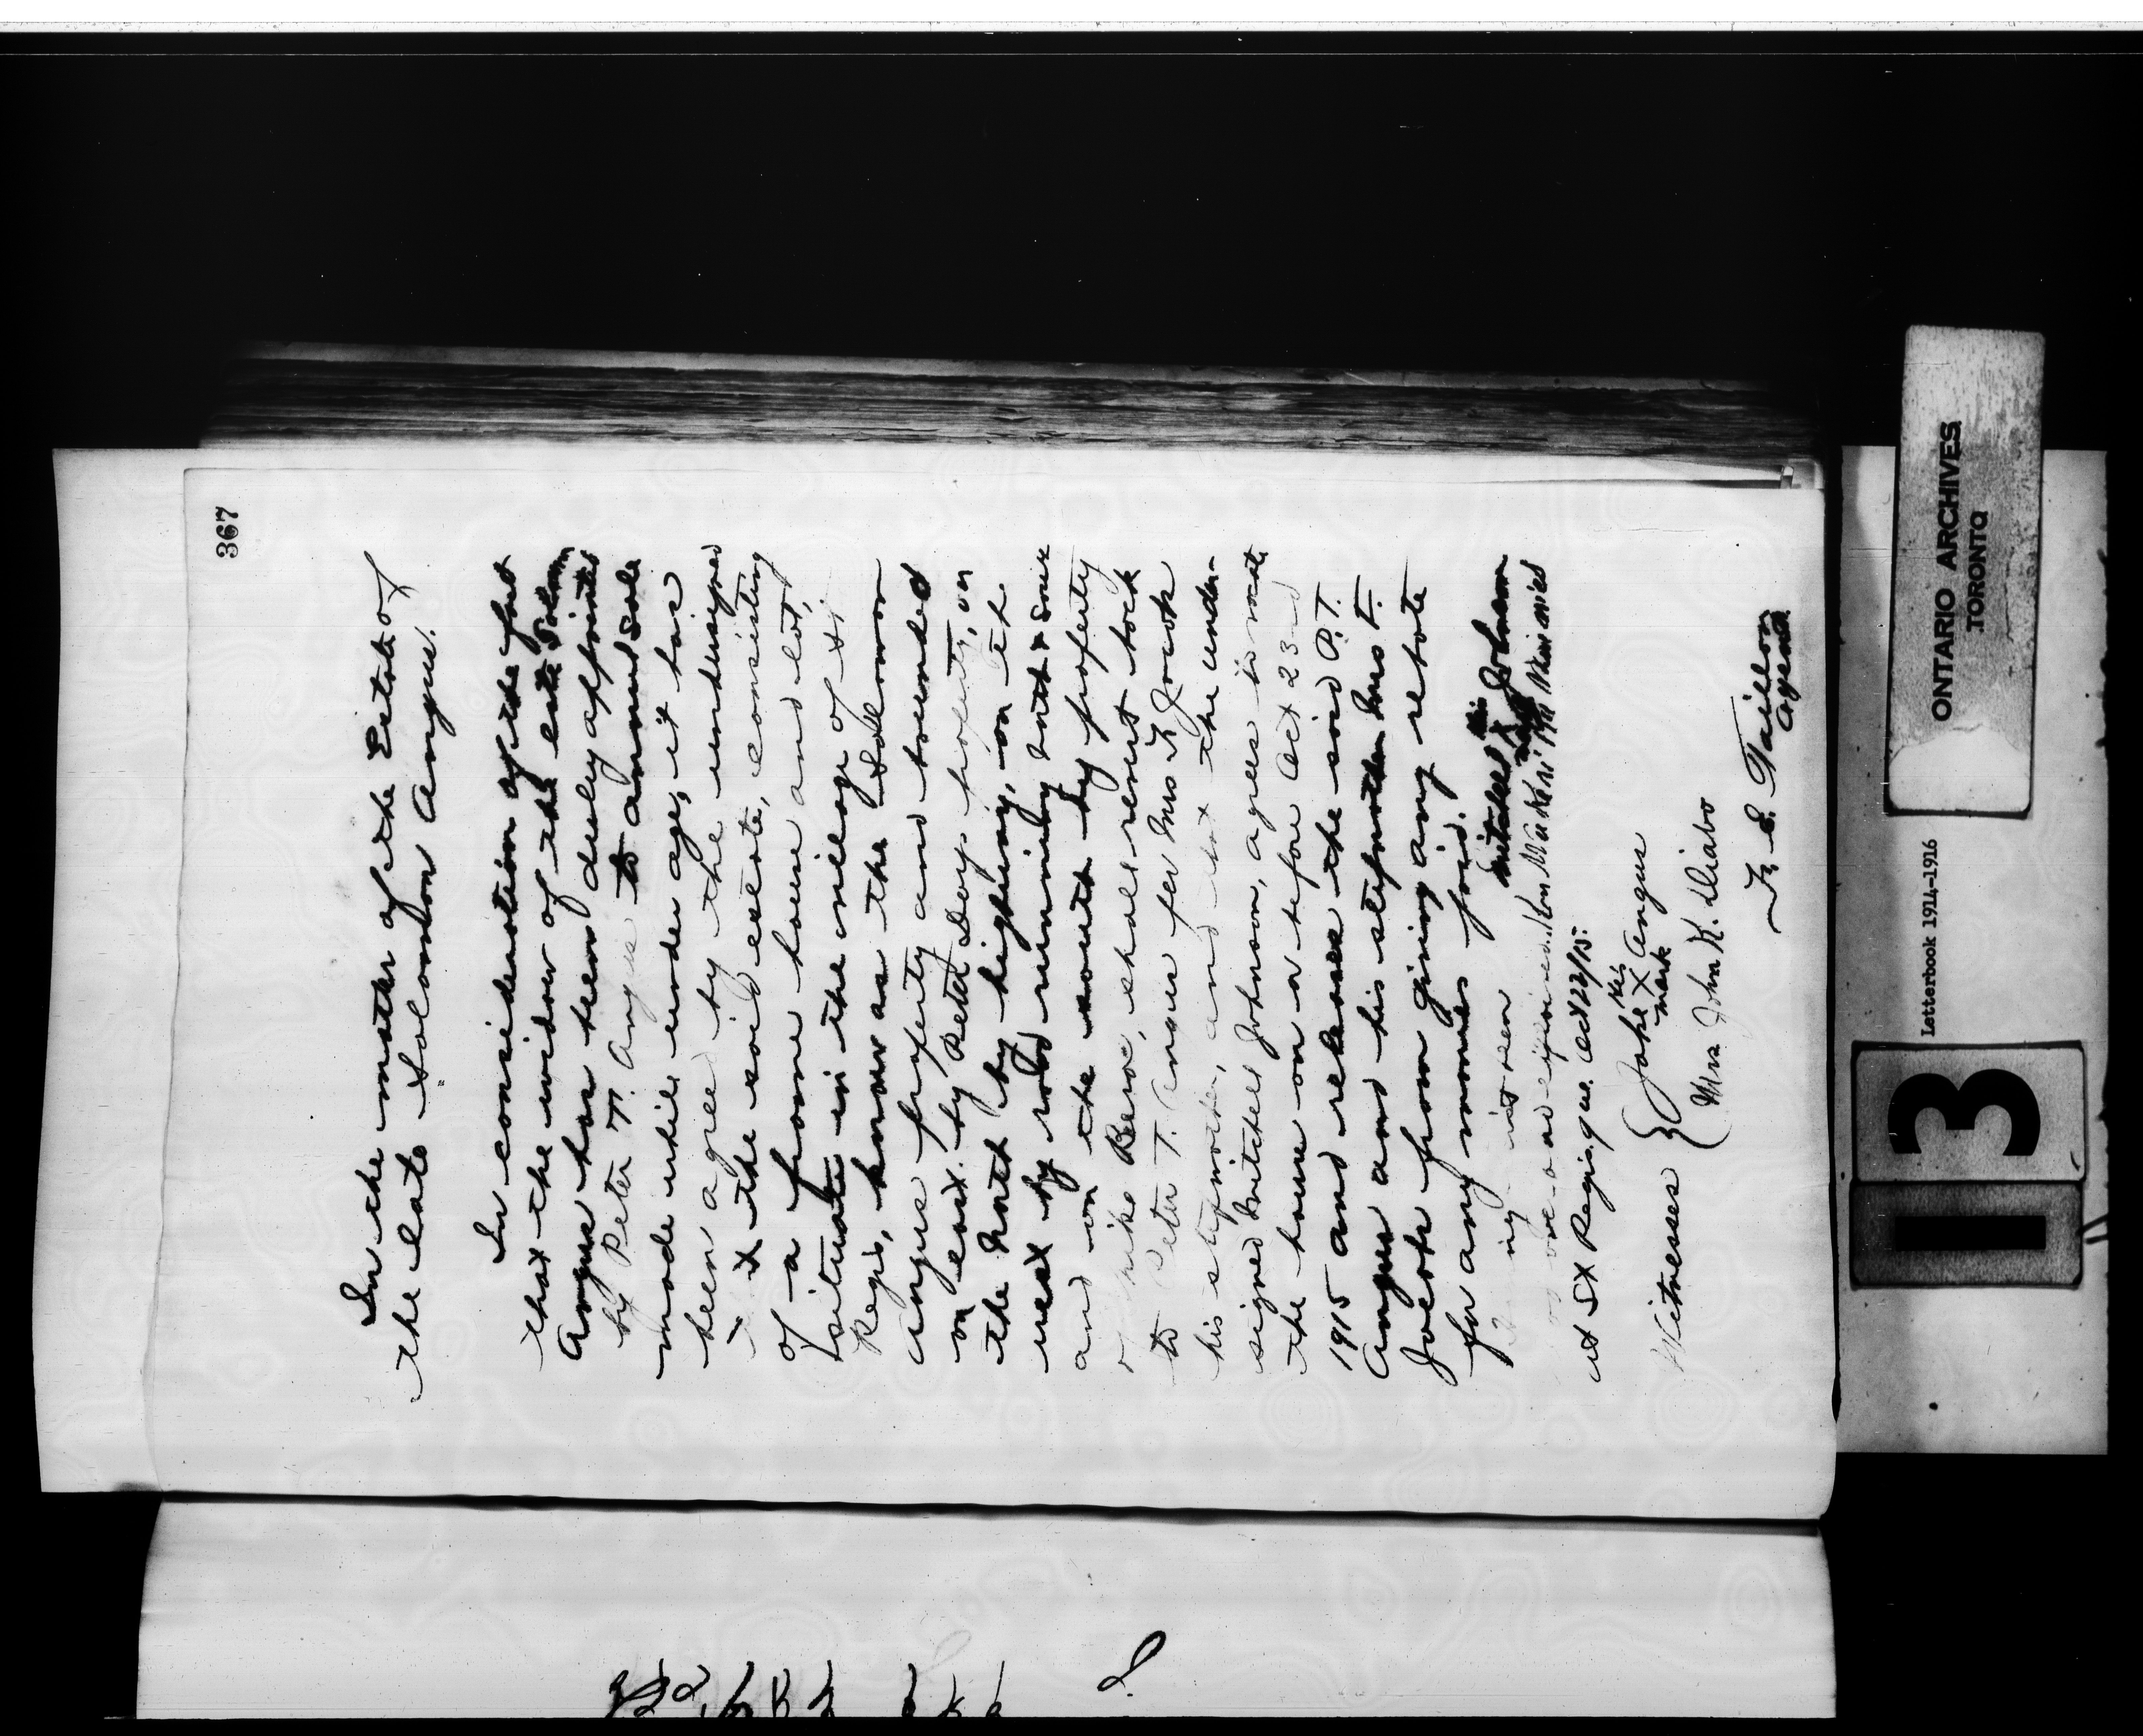 367
In the matter of the Estate of
the late Solomon Angus.
In consideration of the fact
that the widow of the late Solomon
Angus has been duly appointed
by Peter T. Angus to annul sale
made while under age, it has
been agreed by the undersigned
the said estate, consisting
of a frame house and lot,
situate in the village of St.
Regis, known as the Solomon
Angus property and bounded
on east by Peter Days property, on
the North by highway, on the
west by road running north & south
and on the south by property
of Mike Benoe, shall revert back
to Peter T. Angus per Mrs F. Jocote
his stepmother, and that the under-
signed Mitchell Johnson, agrees to vacate
the house on or before Oct 23rd
1915 and releases the said P. T.
Angus and his stepmother Mrs F.
Jocote from giving any rebate
for any monies paid.
Mitchell his X mark Johnson
at St Regis. Que. Oct 22/15.
Witnesses { Jake his X mark Angus
Mrs. John K. Diabo
F. E. Taillon
Agent
ONTARIO ARCHIVES
TORONTO
Letterbook 1914-1916
13